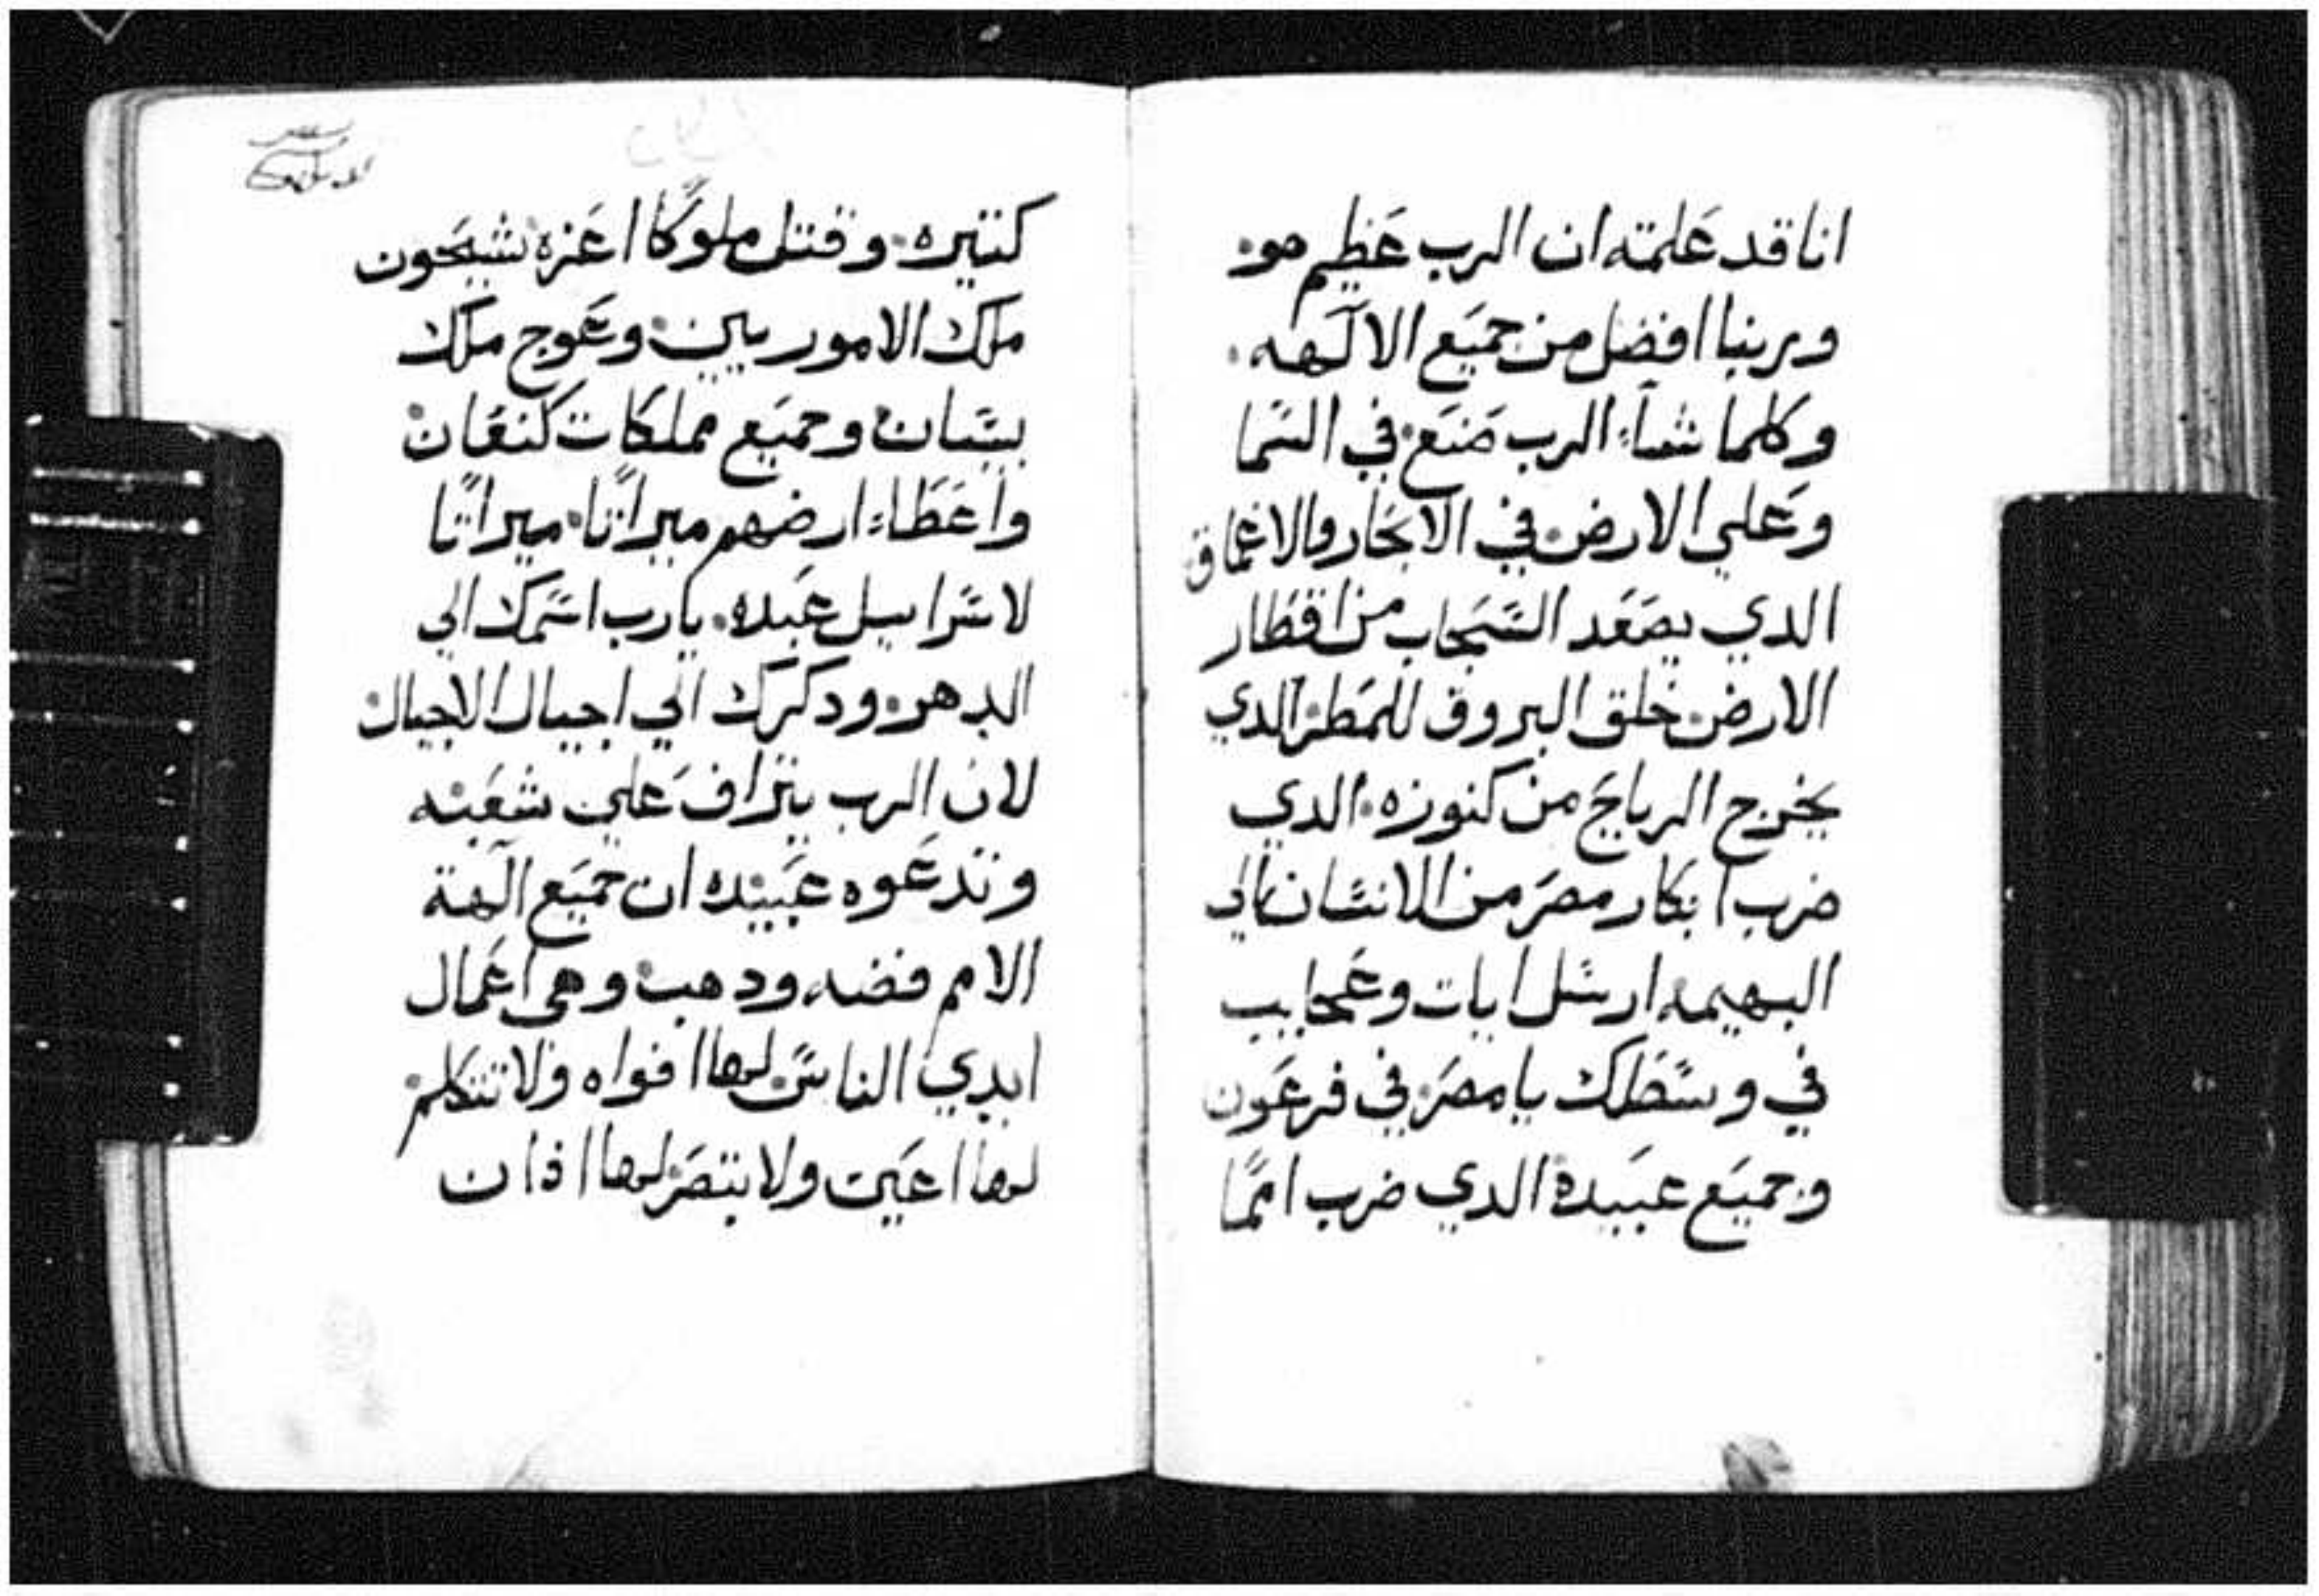 انا قد علمته ان الرب عظيم هو
وربنا افضل من جميع الالهه
وكلما شاء الرب صنع في السما
وعلي الارض في الابحار والاعماق
الدي يصعد السحاب من اقطار
الارض خلق البروق للمطر الدي
يخرج الرياح من كنوزه الدي
ضرب ابكار مصر من الانسان الي
البهيمه ارسل ايات وعجايب
في وسطك يا مصر في فرعون
وجميع عبيده الدي ضرب امما
كتيره وقتل ملوكا اعزه شيحون
ملك الاموريين وعوج ملك
بيسان وجميع مملكات كنعان
واعطاء ارضهم ميراتا ميراتا
لاسراييل عبده يارب اسمك الي
الدهر ودكرك الي اجيال الاجيال
لان الرب يتراف علي شعبه
وتدعوه عبيده ان جميع الهة
الامم فضه ودهب وهي اعمال
ايدي الناس لها افواه ولا تتكلم
لها اعين ولا تبصر لها اذان